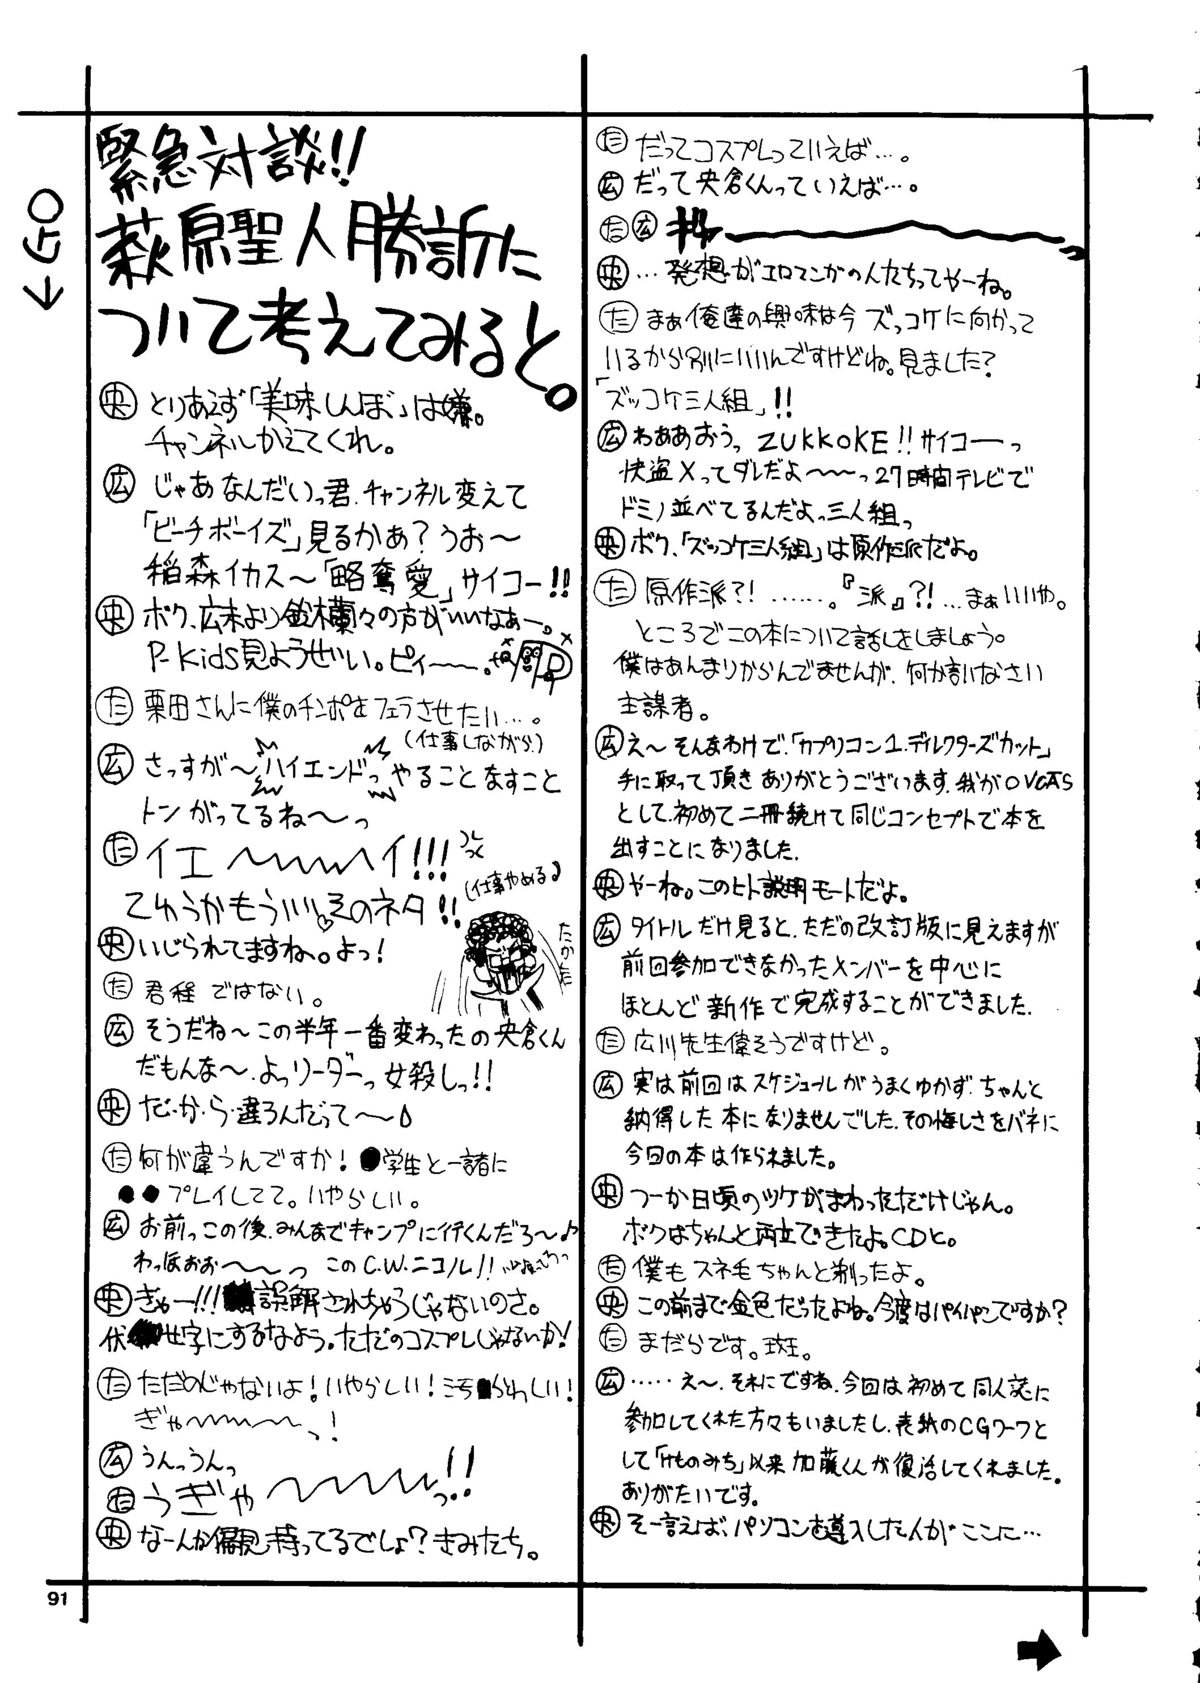 緊急対談!!
萩原聖人勝訴に
ついて考えてみると。
央 とりあえず「美味しんぼ」は嫌。
チャンネルかえてくれ。
広 じゃあなんだいっ君、チャンネル変えて
「ビーチボーイズ」見るかぁ?うお〜
稲森イカス〜「略奪愛」サイコー!!
央 ボク、広末より鈴木蘭々の方がいいなぁー。
P-Kids見ようぜい。ピィー〜。
た 栗田さんに僕のチンポをフェラさせたい…。
(仕事しながら)
広 さっすが〜ハイエンドっやることなすこと
トンがってるね〜っ
た イエ〜〜〜イ!!!
てゆうかもういいっそのネタ!!
(仕事やめる)
たかた
央 いじられてますね。よっ!
た 君程ではない。
広 そうだね〜この半年一番変わったの央倉くん
だもんな〜、よっリーダーっ女殺しっ!!
央 だ・か・ら・違ろんだって〜♪
た 何が違うんですか!●学生と一緒に
●●プレイしてて。いやらしい。
広 お前っこの後、みんなでキャンプに行くんだろ〜♪
わっほぉぉ〜〜っ このC.W.ニコル!!
央 ぎゃー!!!誤解されちゃうじゃないのさ。
伏せ字にするなよう。ただのコスプレじゃないか!
た ただのじゃないよ!いやらしい!
ぎゃ〜〜〜っ!
広 うんっうんっ
た うぎゃ〜〜〜っ!!
央 なーんか偏見持ってるでしょ?きみたち。
た だってコスプレっていえば…。
広 だって央倉くんっていえば…。
た 広
央 …発想がエロマンガの人たちってやーね。
た まぁ俺達の興味は今ズッコケに向かって
いるから別にいいんですけどね。見ました?
「ズッコケ三人組」!!
広 わああおうっ ZUKKOKE!!サイコーっ
快盗Xってダレだよ〜〜っ27時間テレビで
ドミノ並べてるんだよっ三人組っ
央 ボク、「ズッコケ三人組」は原作派だよ。
た 原作派?!……。『派』?!…まぁいいや。
ところでこの本について話しをしましょう。
僕はあんまりからんでませんが、何か言いなさい
主謀者。
広 え〜そんなわけで、「カプリコン1.ディレクターズカット」
手に取って頂きありがとうございます。我がOVACAS
として、初めて二冊続けて同じコンセプトで本を
出すことになりました。
央 やーね。このヒト説明モードだよ。
広 タイトルだけ見ると、ただの改訂版に見えますが
前回参加できなかったメンバーを中心に
ほとんど新作で完成することができました。
た 広川先生偉そうですけど。
広 実は前回はスケジュールがうまくゆかず、ちゃんと
納得した本になりませんでした。その悔しさをバネに
今回の本は作られました。
央 つーか日頃のツケがまわっただけじゃん。
ボクはちゃんと両立できたよ。CDと。
た 僕もスネ毛ちゃんと剃ったよ。
央 この前まで金色だったよね。今度はパイパンですか?
た まだらです。斑。
広 ……え〜、それにですね、今回は初めて同人誌に
参加してくれた方々もいましたし、表紙のCGワークと
して「けものみち」以来加藤くんが復活してくれました。
ありがたいです。
央 そー言えば、パソコンを導入した人がここに…
91